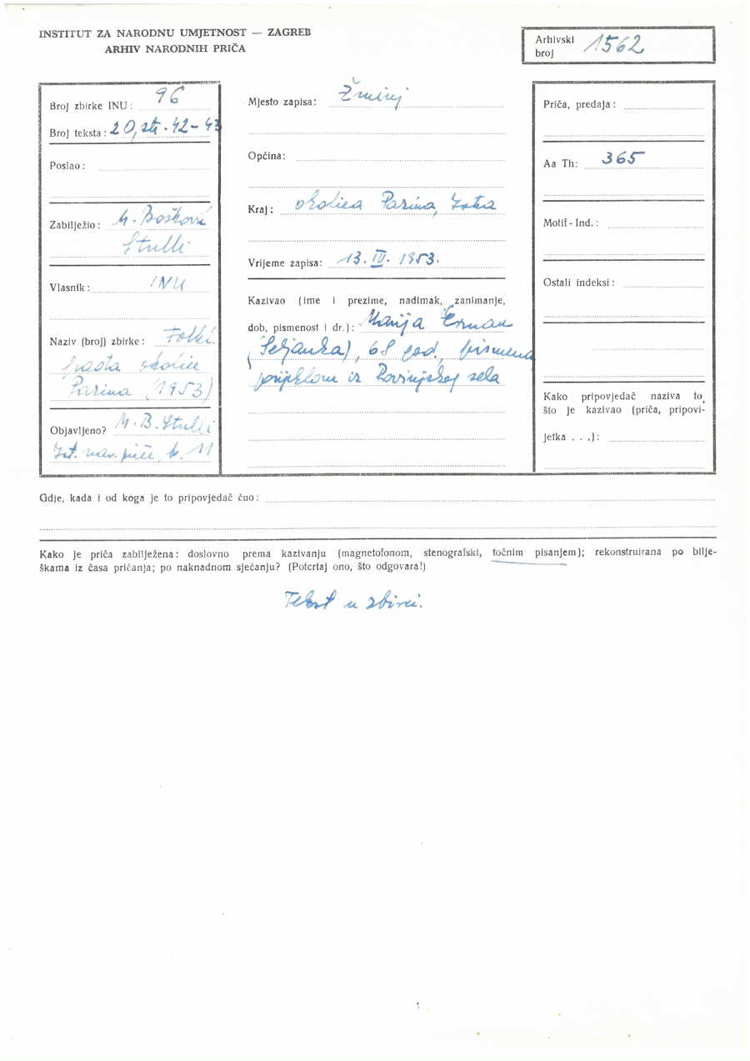 INSTITUT ZA NARODNU UMJETNOST — ZAGREB
ARHIV NARODNIH PRIČA
Arhivski broj 1562
Broj zbirke INU: 96
Broj teksta: 20, str. 42-43
Poslao:
Zabilježio: M. Bošković
Stulli
Vlasnik: INU
Naziv (broj) zbirke: Folkl.
građa okolice
Pazina (1953)
Objavljeno? M. B. Stulli
Ist. nar. priče, br. 11
Mjesto zapisa: Žminj
Općina:
Kraj: okolica Pazina, Istra
Vrijeme zapisa: 13. IV. 1953.
Kazivao (ime i prezime, nadimak, zanimanje,
dob, pismenost i dr.): Marija Erman
(seljanka), 68 god., pismena
porijeklom iz Rovinjskog sela
Priča, predaja:
Aa Th: 365
Motif - Ind.:
Ostali indeksi:
Kako pripovjedač naziva to
što je kazivao (priča, pripovi-
jetka . . .):
Gdje, kada i od koga je to pripovjedač čuo:
Kako je priča zabilježena: doslovno prema kazivanju (magnetofonom, stenografski, točnim pisanjem); rekonstruirana po bilje-
škama iz časa pričanja; po naknadnom sjećanju? (Potcrtaj ono, što odgovara!)
Tekst u zbirci.